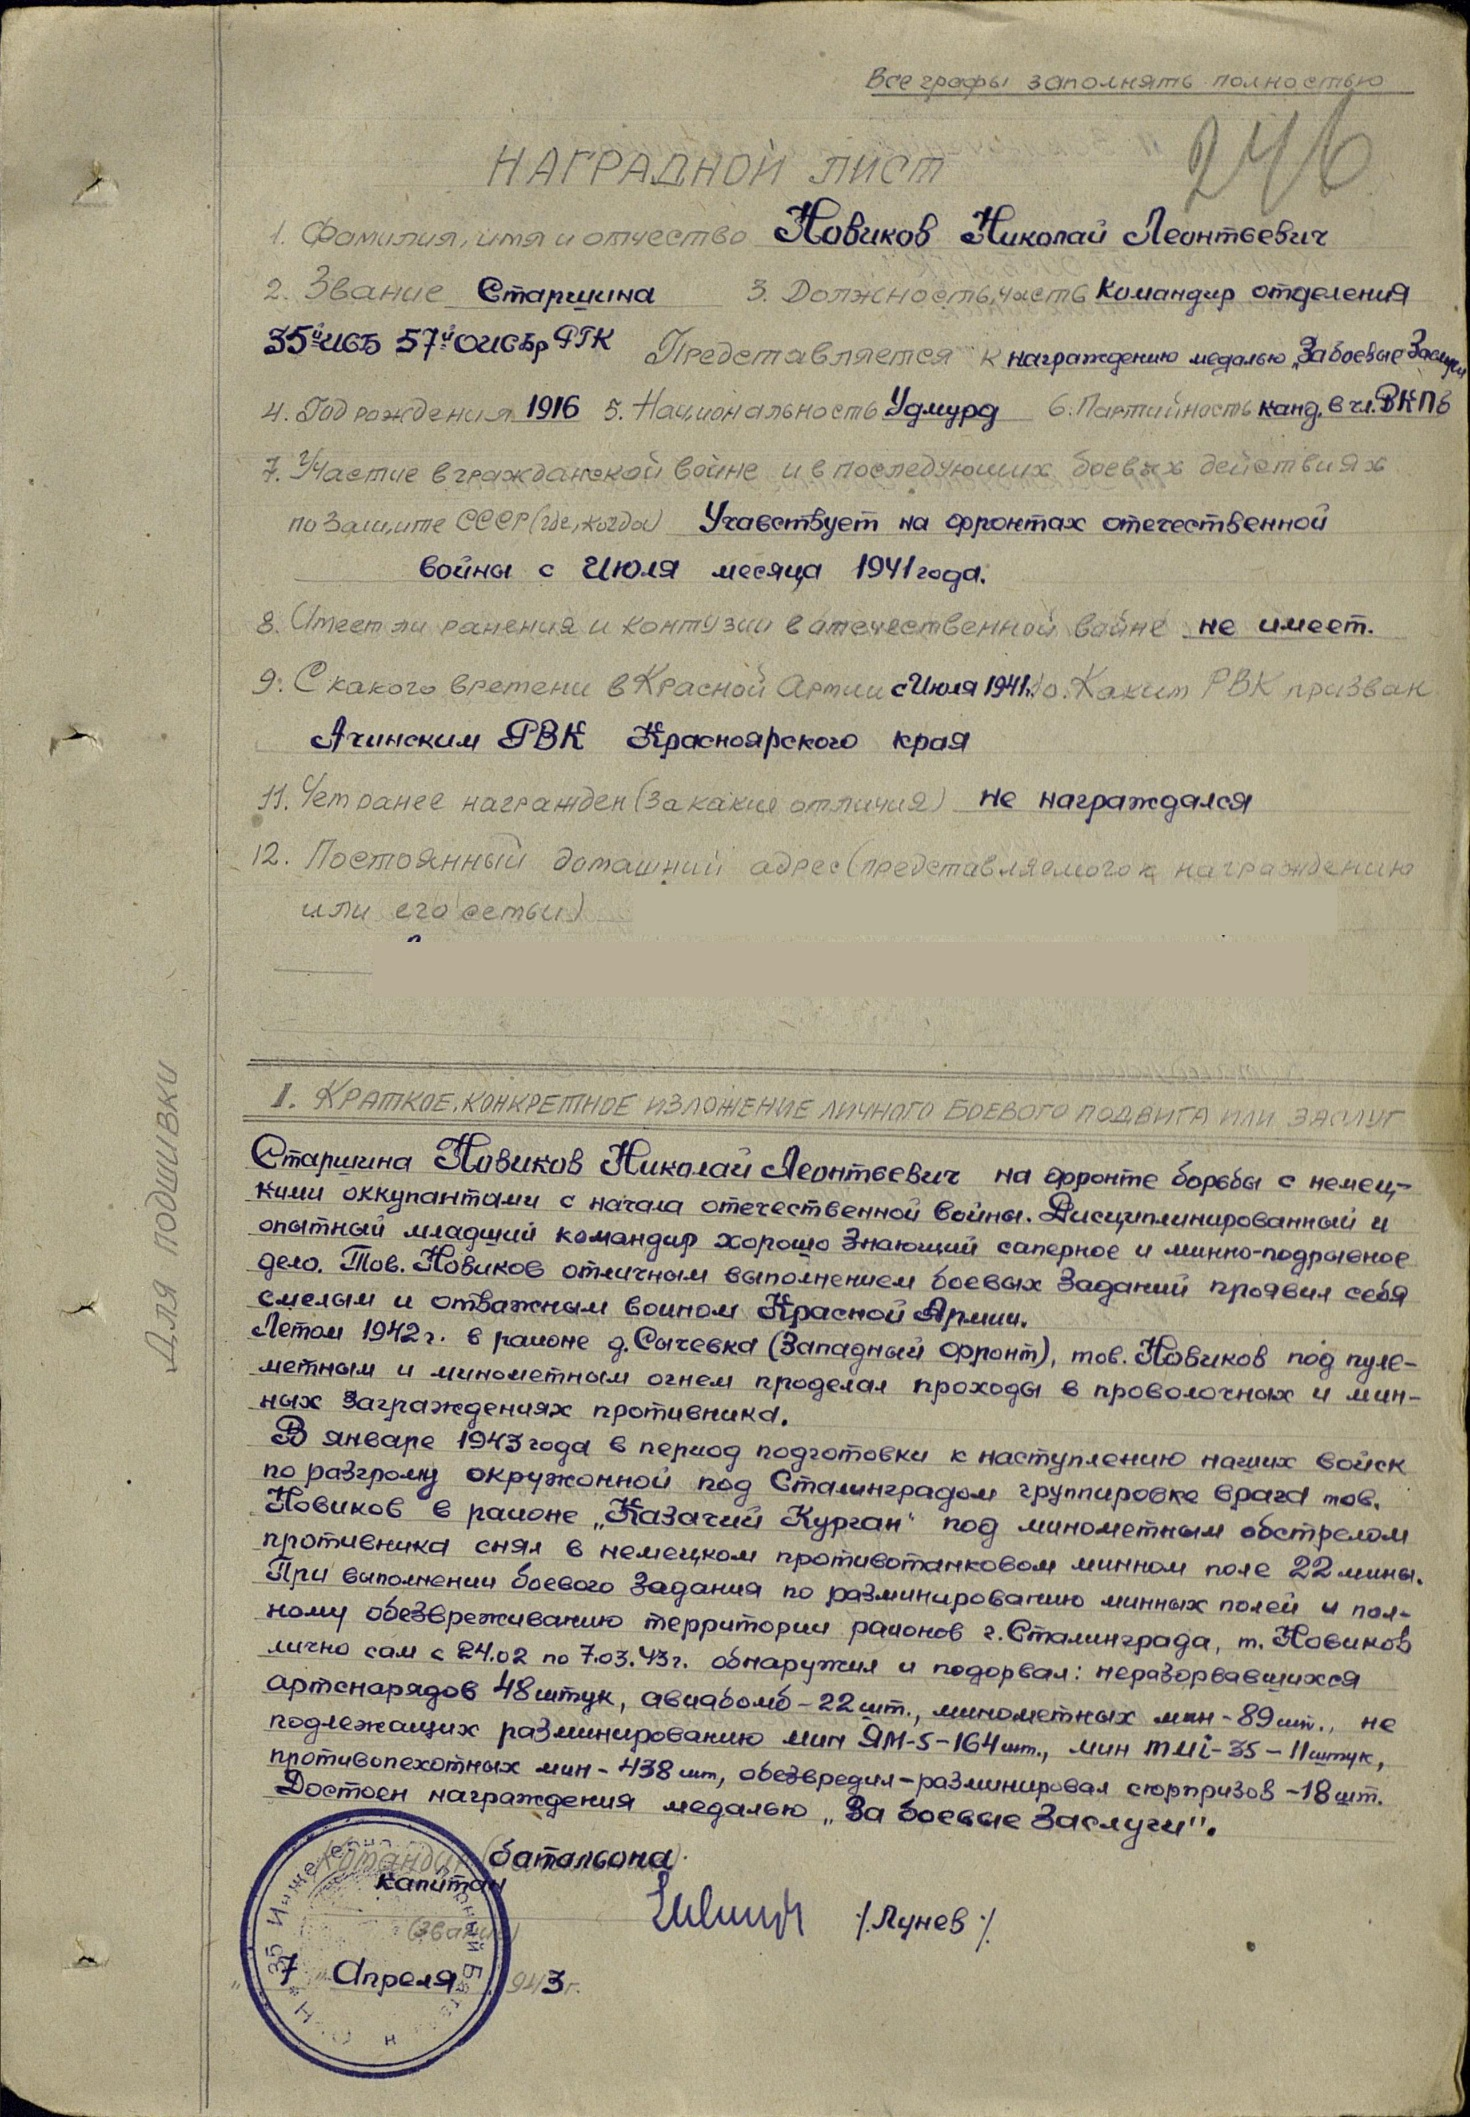 Все графы заполнять полностью
246
НАГРАДНОЙ ЛИСТ
1. Фамилия, имя и отчество Новиков Николай Леонтьевич
2. Звание Старшина 3. Должность, часть Командир отделения
35й ИСБ 57й ОИСБр РГК Представляется к награждению медалью „За боевые Заслуги
4. Год рождения 1916 5. Национальность Удмурд 6. Партийность канд. в чл. ВКПб
7. Участие в гражданской войне и в последующих боевых действиях
по защите СССР (где, когда) Учавствует на фронтах отечественной
войны с Июля месяца 1941 года.
8. Имеет ли ранения и контузии в отечественной войне не имеет.
9. С какого времени в Красной Армии с Июля 1941. 10. Каким РВК призван
Ачинским РВК Красноярского края
11. Чем ранее награжден (за какие отличия) не награждался
12. Постоянный домашний адрес (представляемого к награждению
или его семьи)
Для подшивки
I. КРАТКОЕ, КОНКРЕТНОЕ ИЗЛОЖЕНИЕ ЛИЧНОГО БОЕВОГО ПОДВИГА ИЛИ ЗАСЛУГ
Старшина Новиков Николай Леонтьевич на фронте борьбы с немец-
кими оккупантами с начала отечественной войны. Дисциплинированный и
опытный младший командир хорошо знающий саперное и минно-подрывное
дело. Тов. Новиков отличным выполнением боевых заданий проявил себя
смелым и отважным воином Красной Армии.
Летом 1942 г. в районе д. Сычевка (Западный фронт), тов. Новиков под пуле-
метным и минометным огнем проделал проходы в проволочных и мин-
ных заграждениях противника.
В январе 1943 года в период подготовки к наступлению наших войск
по разгрому окружонной под Сталинградом группировке врага тов.
Новиков в районе „Казачий Курган" под минометным обстрелом
противника снял в немецком противотанковом минном поле 22 мины.
При выполнении боевого задания по разминированию минных полей и пол-
ному обезвреживанию территории районов г. Сталинграда, т. Новиков
лично сам с 24.02 по 7.03.43 г. обнаружил и подорвал: неразорвавшихся
артснарядов 48 штук, авиабомб - 22 шт., минометных мин - 89 шт., не
подлежащих разминированию мин ЯМ-5 - 164 шт., мин ТМi-35 - 11 штук,
противопехотных мин - 438 шт, обезвредил - разминировал сюрпризов - 18 шт.
Достоен награждения медалью „За боевые Заслуги".
Командир батальона
капитан
(звание)
/. Лунев /.
„7" Апреля 1943 г.
35 Инженерно